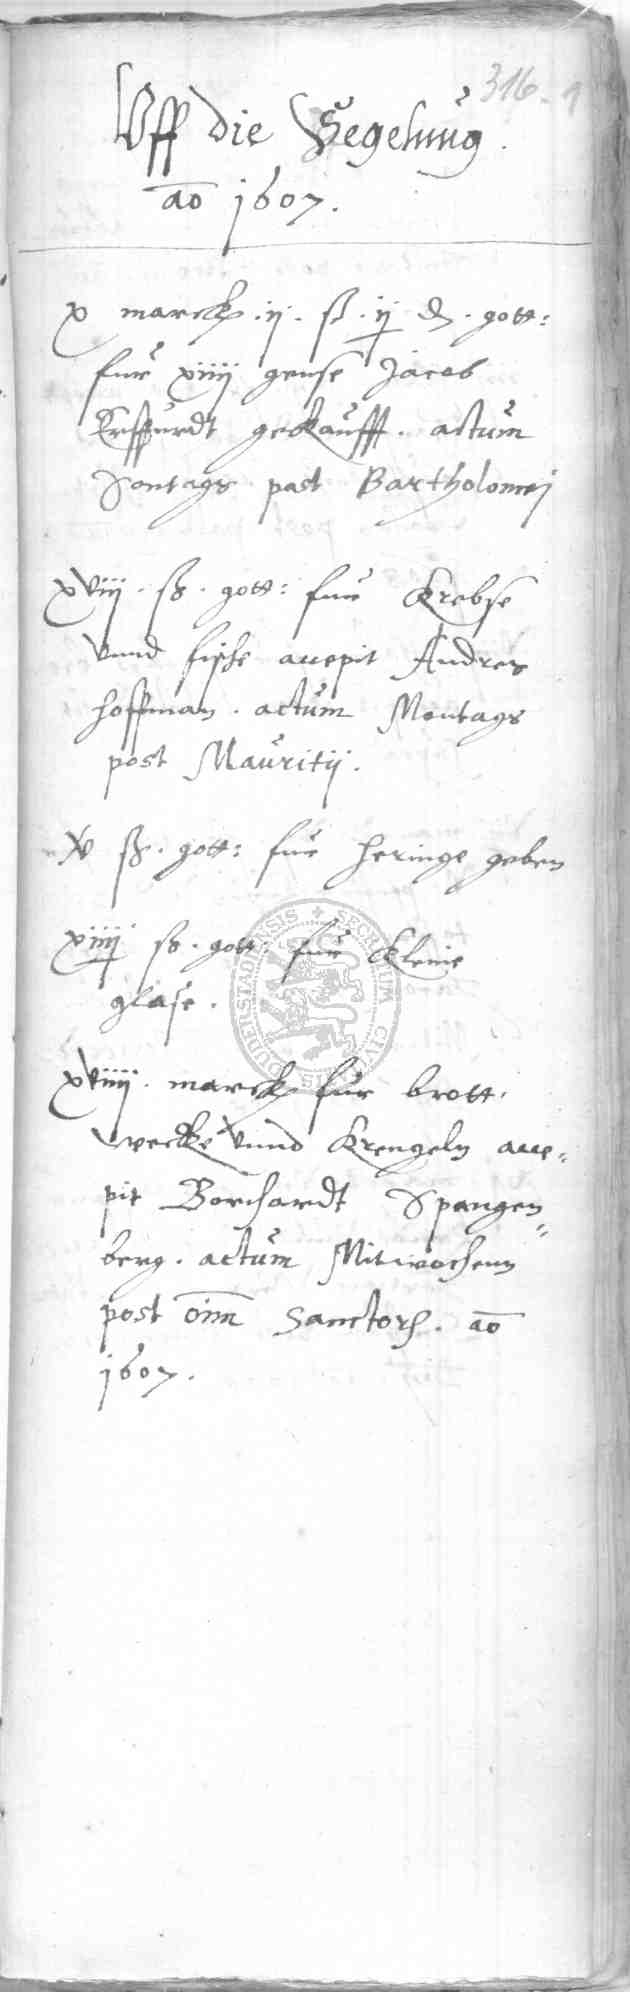 316. 1
Uff die Segelung.
ao 1607.
x marck .ij. ß .ij ₰. gott:
fur xiiij gense Jacob
Erffurdt gekaufft. actum
Sontags past Bartholomej
xviij. ß. gott: fur Krebse
vnnd fische accepit Andres
Hoffman. actum Montags
post Mauritij.
xv ß. gott: fur Heringe geben
xiiij ß. gott: fur Kleine
glase.
xviiij. marck fur brott.
wecke vnnd Krengeln acce=
pit Borchardt Spangen=
berg. actum Mitwochenn
post om̄ Sanctor. ao
1607.
SECRETUM CIVI DUDERSTADENSIS